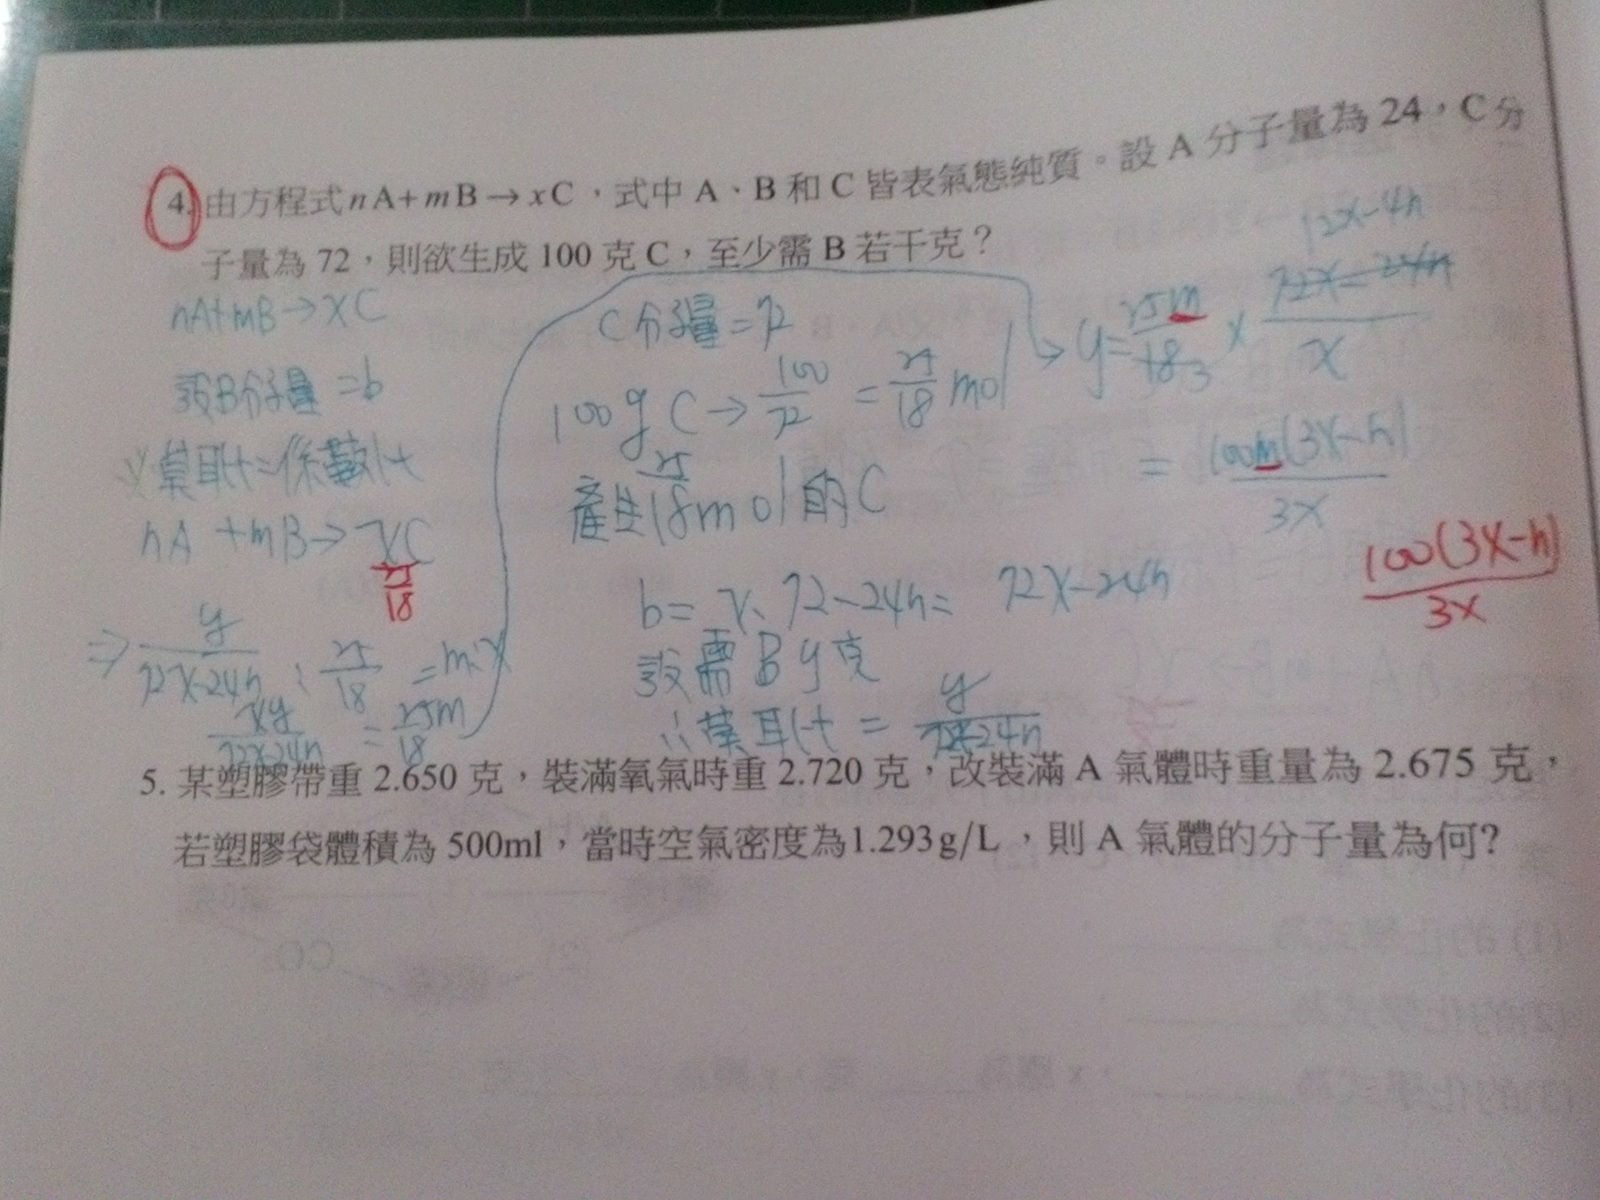 4. 由方程式nA+mB→xC，式中 A、B 和 C 皆表氣態純質。設 A 分子量為 24，C 分
子量為 72，則欲生成 100 克 C，至少需 B 若干克？
nA+mB→xC
設B分子量=b
∵莫耳比=係數比
nA+mB→xC
25/18
⇒ y/(72x-24n) : 25/18 = m:x
xy/(72x-24n) = 25m/18
C分子量=72
100g C→ 100/72 = 25/18 mol
產生25/18mol的C
b= x·72-24n= 72x-24n
設需B y克
∴莫耳比 = y/(72x-24n)
12x-4n
y= 25m/18 3 × 72x-24n/x
= 100m(3x-n)/3x
100(3x-n)/3x
5. 某塑膠帶重 2.650 克，裝滿氧氣時重 2.720 克，改裝滿 A 氣體時重量為 2.675 克，
若塑膠袋體積為 500ml，當時空氣密度為1.293g/L，則 A 氣體的分子量為何?